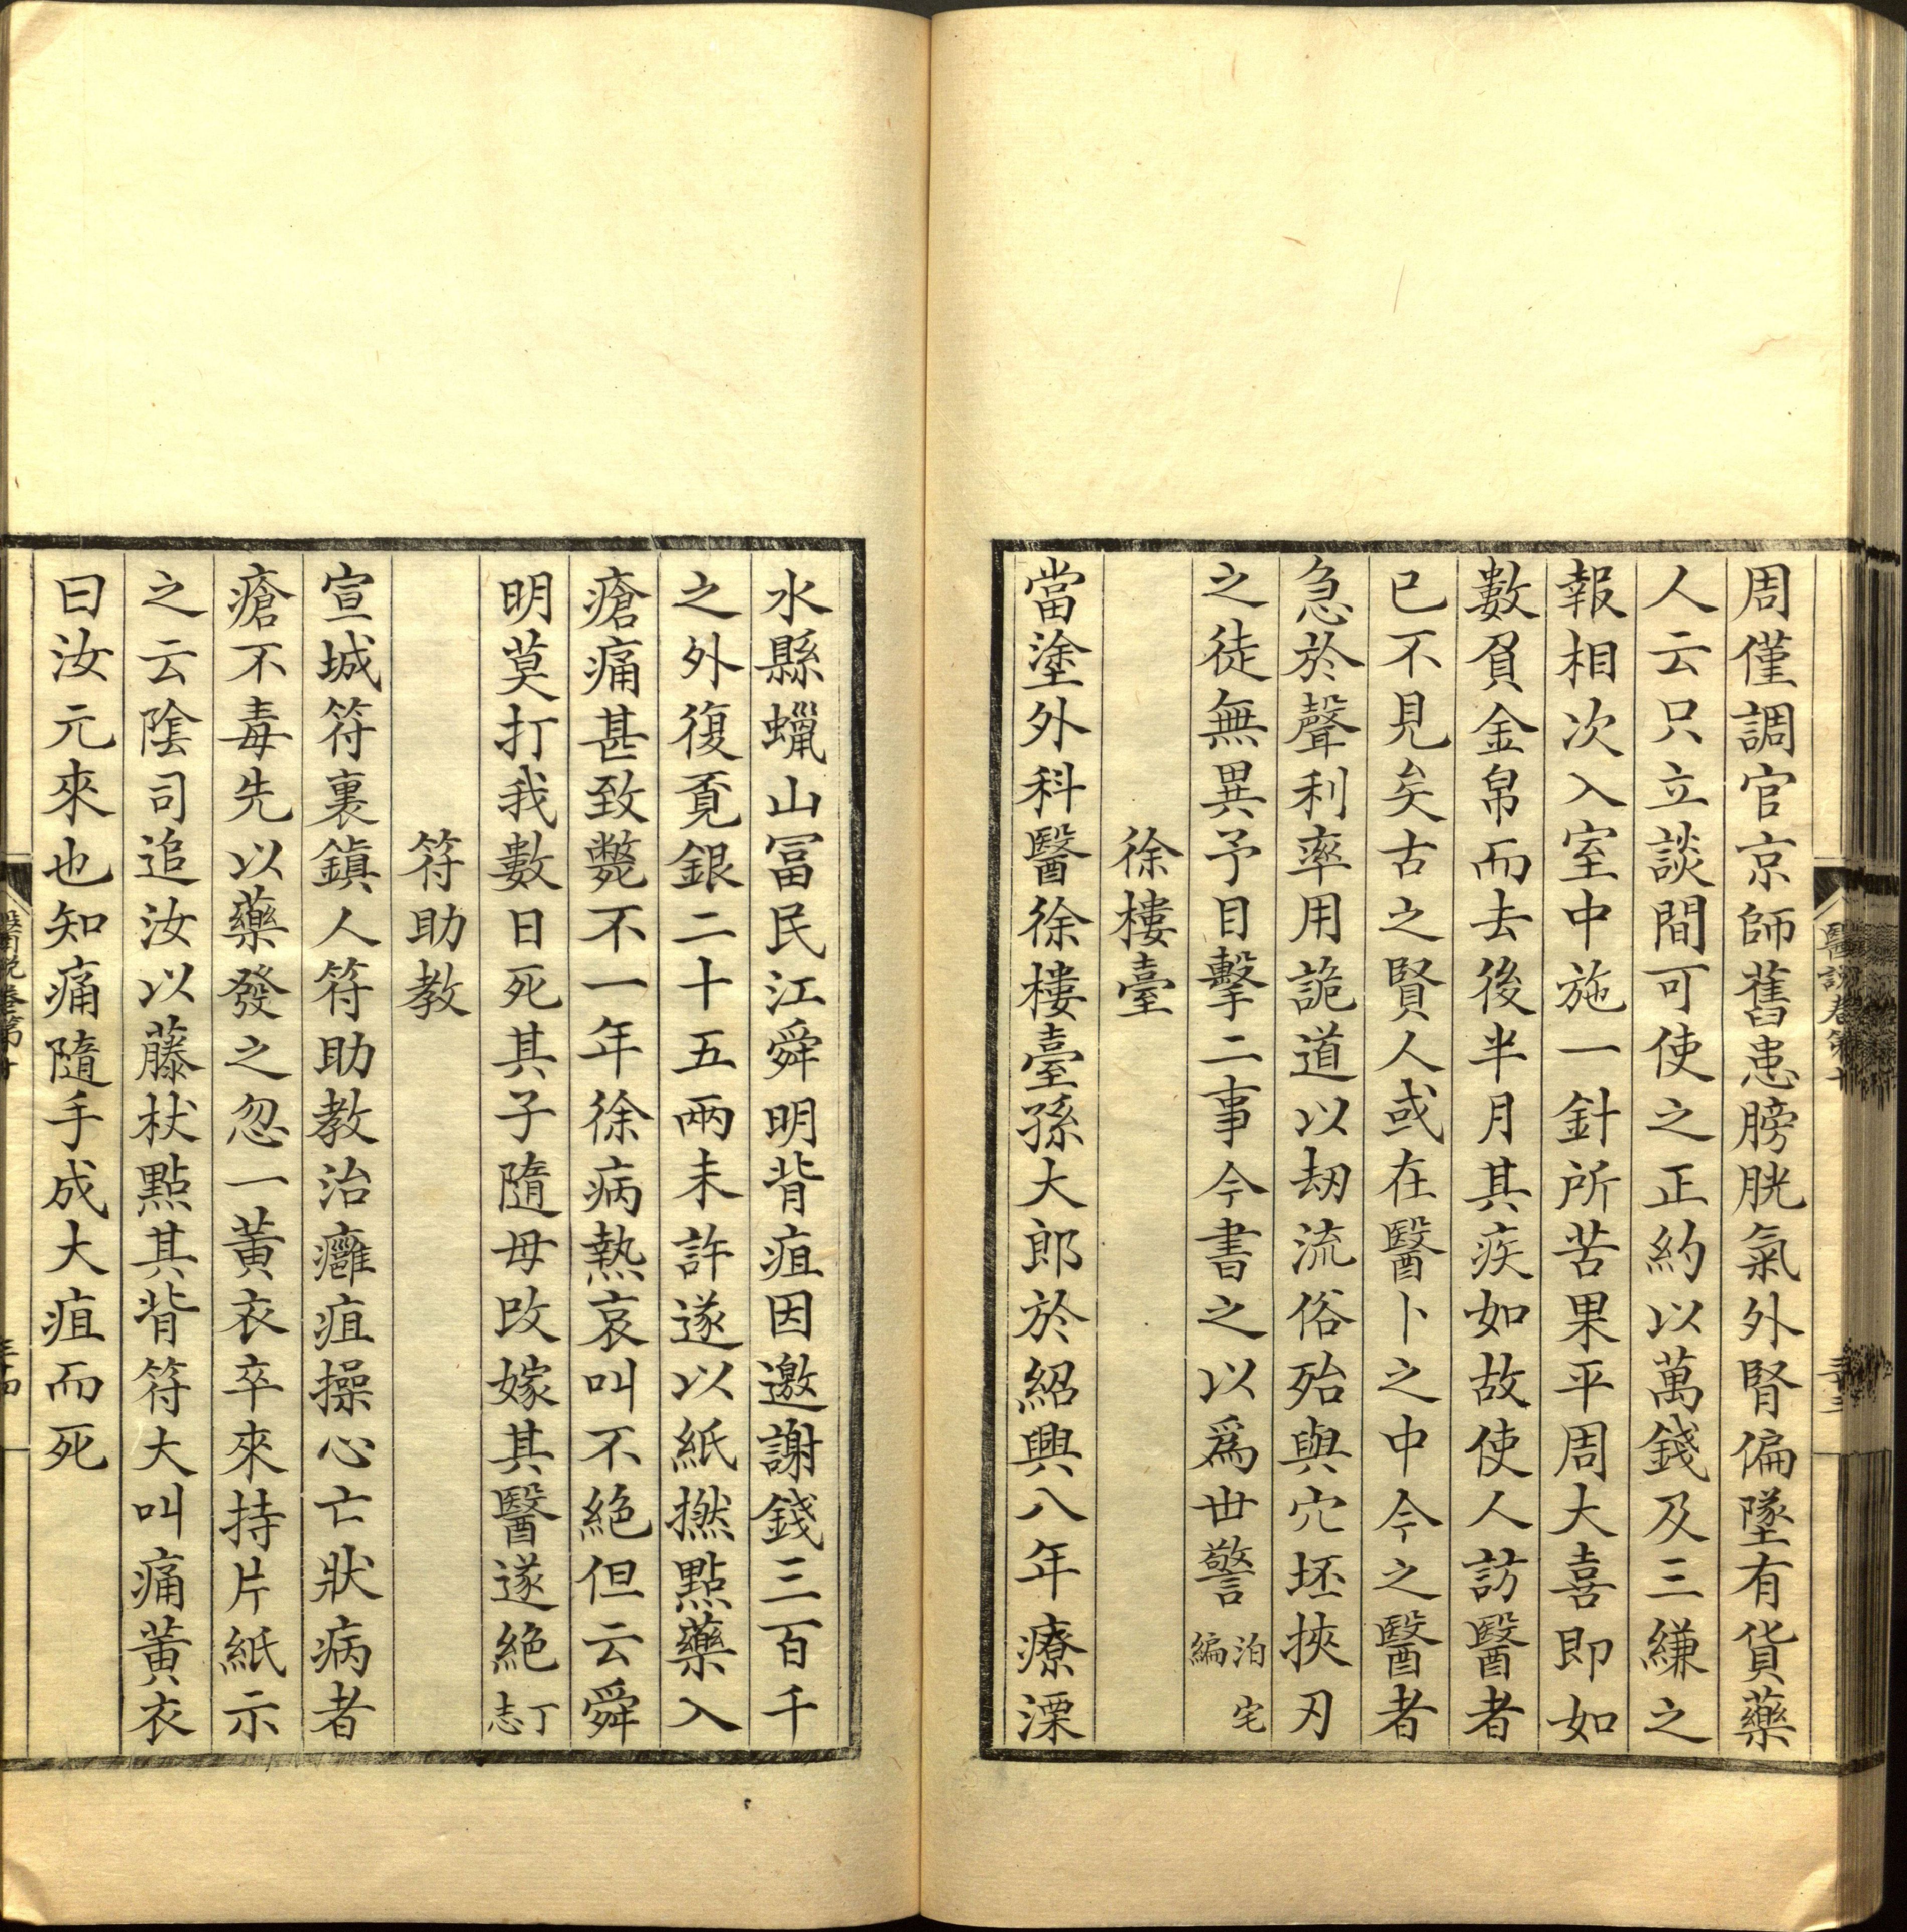 周僅調官京師舊患膀胱氣外腎偏墜有貨藥
人云只立談間可使之正約以萬錢及三縑之
報相次入室中施一針所苦果平周大喜即如
數負金帛而去後半月其疾如故使人訪醫者
已不見矣古之賢人或在醫卜之中今之醫者
急於聲利率用詭道以劫流俗殆與穴坯挾刃
之徒無異予目擊二事今書之以爲世警泊宅編
徐樓臺
當塗外科醫徐樓臺孫大郎於紹興八年療溧
水縣蠟山冨民江舜明背疽因邀謝錢三百千
之外復覔銀二十五兩未許遂以紙撚點藥入
瘡痛甚致斃不一年徐病熱哀叫不絕但云舜
明莫打我數日死其子隨母改嫁其醫遂絕丁志
符助教
宣城符裏鎮人符助教治癰疽操心亡狀病者
瘡不毒先以藥發之忽一黃衣卒來持片紙示
之云陰司追汝以藤杖點其背符大叫痛黃衣
曰汝元來也知痛隨手成大疽而死
醫說卷第十
三十三